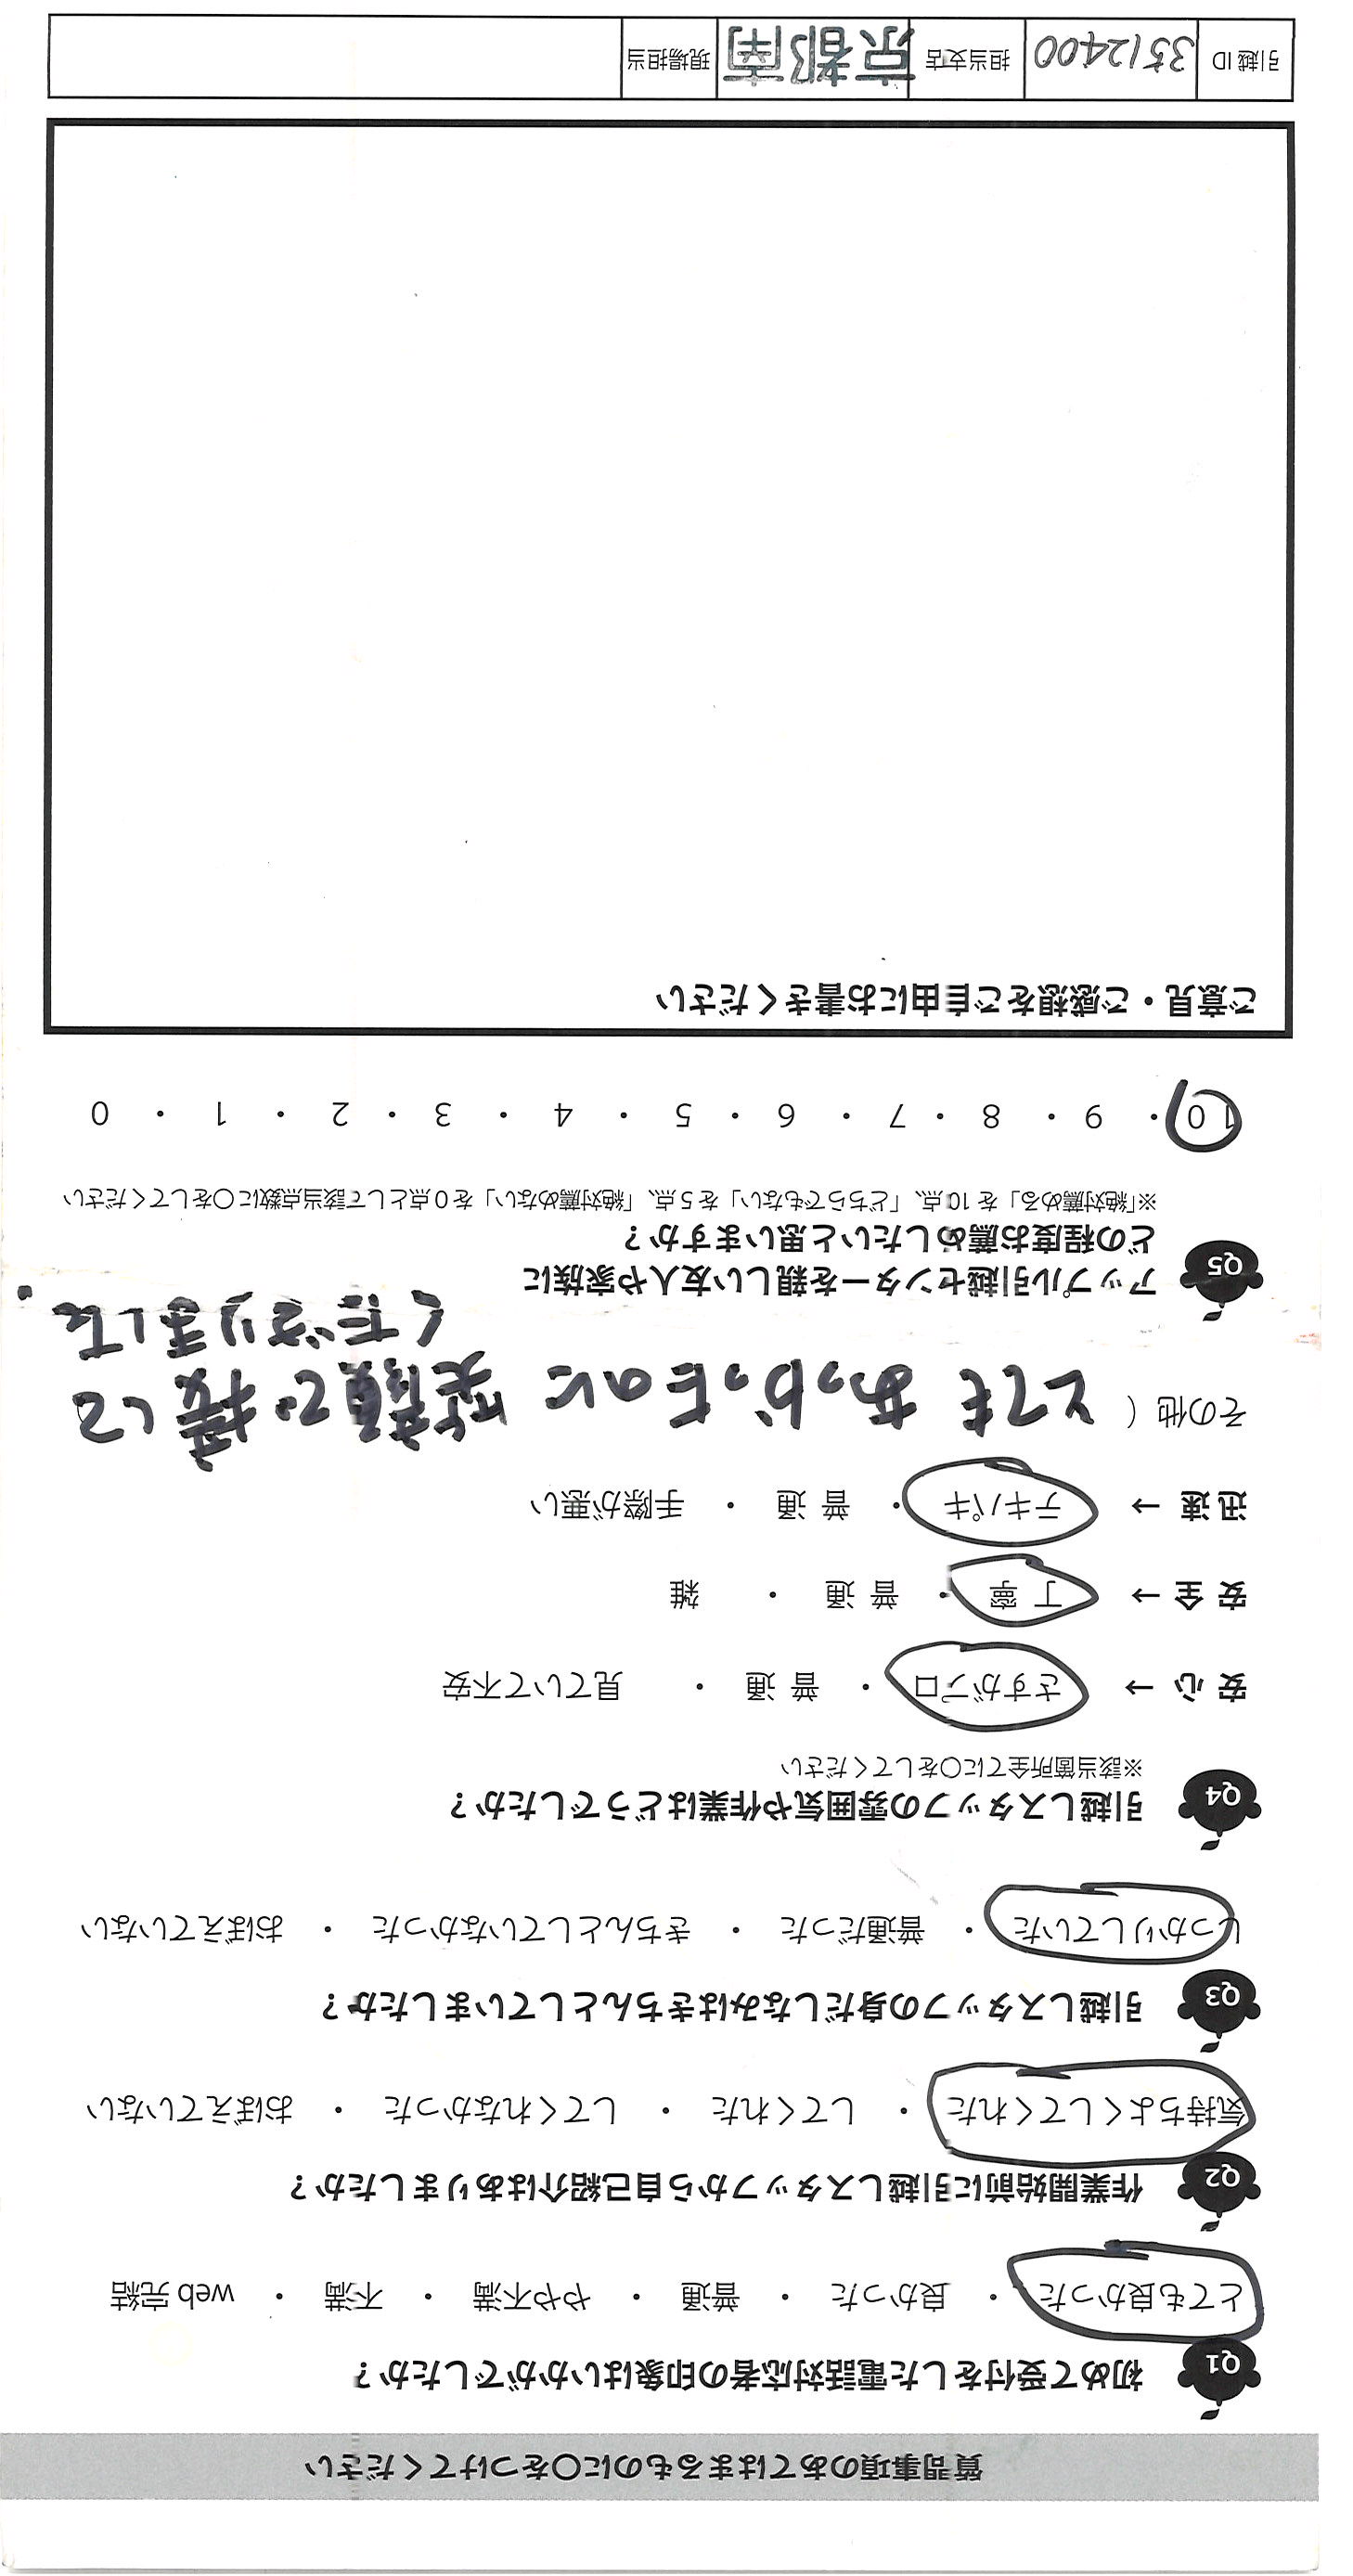 質問事項のあてはまるものに〇をつけてください
Q1 初めて受付をした電話対応者の印象はいかがでしたか?
とても良かった ・ 良かった ・ 普通 ・ やや不満 ・ 不満 ・ web 完結
Q2 作業開始前に引越しスタッフから自己紹介はありましたか?
気持ちよくしてくれた ・ してくれた ・ してくれなかった ・ おぼえていない
Q3 引越しスタッフの身だしなみはきちんとしていましたか?
しっかりしていた ・ 普通だった ・ きちんとしていなかった ・ おぼえていない
Q4 引越しスタッフの雰囲気や作業はどうでしたか?
※該当箇所全てに〇をしてください
安心 → さすがプロ ・ 普通 ・ 見ていて不安
安全 → 丁寧 ・ 普通 ・ 雑
迅速 → テキパキ ・ 普通 ・ 手際が悪い
その他 ( とても あつかったのに 笑顔で接して
くださりました。
Q5 アップル引越センターを親しい友人や家族に
どの程度お薦めしたいと思いますか?
※「絶対薦める」を 10 点、「どちらでもない」を 5 点、「絶対薦めない」を 0 点として該当点数に〇をしてください
10 ・ 9 ・ 8 ・ 7 ・ 6 ・ 5 ・ 4 ・ 3 ・ 2 ・ 1 ・ 0
ご意見・ご感想をご自由にお書きください
引越 ID 3512400 担当支店 京都南 現場担当